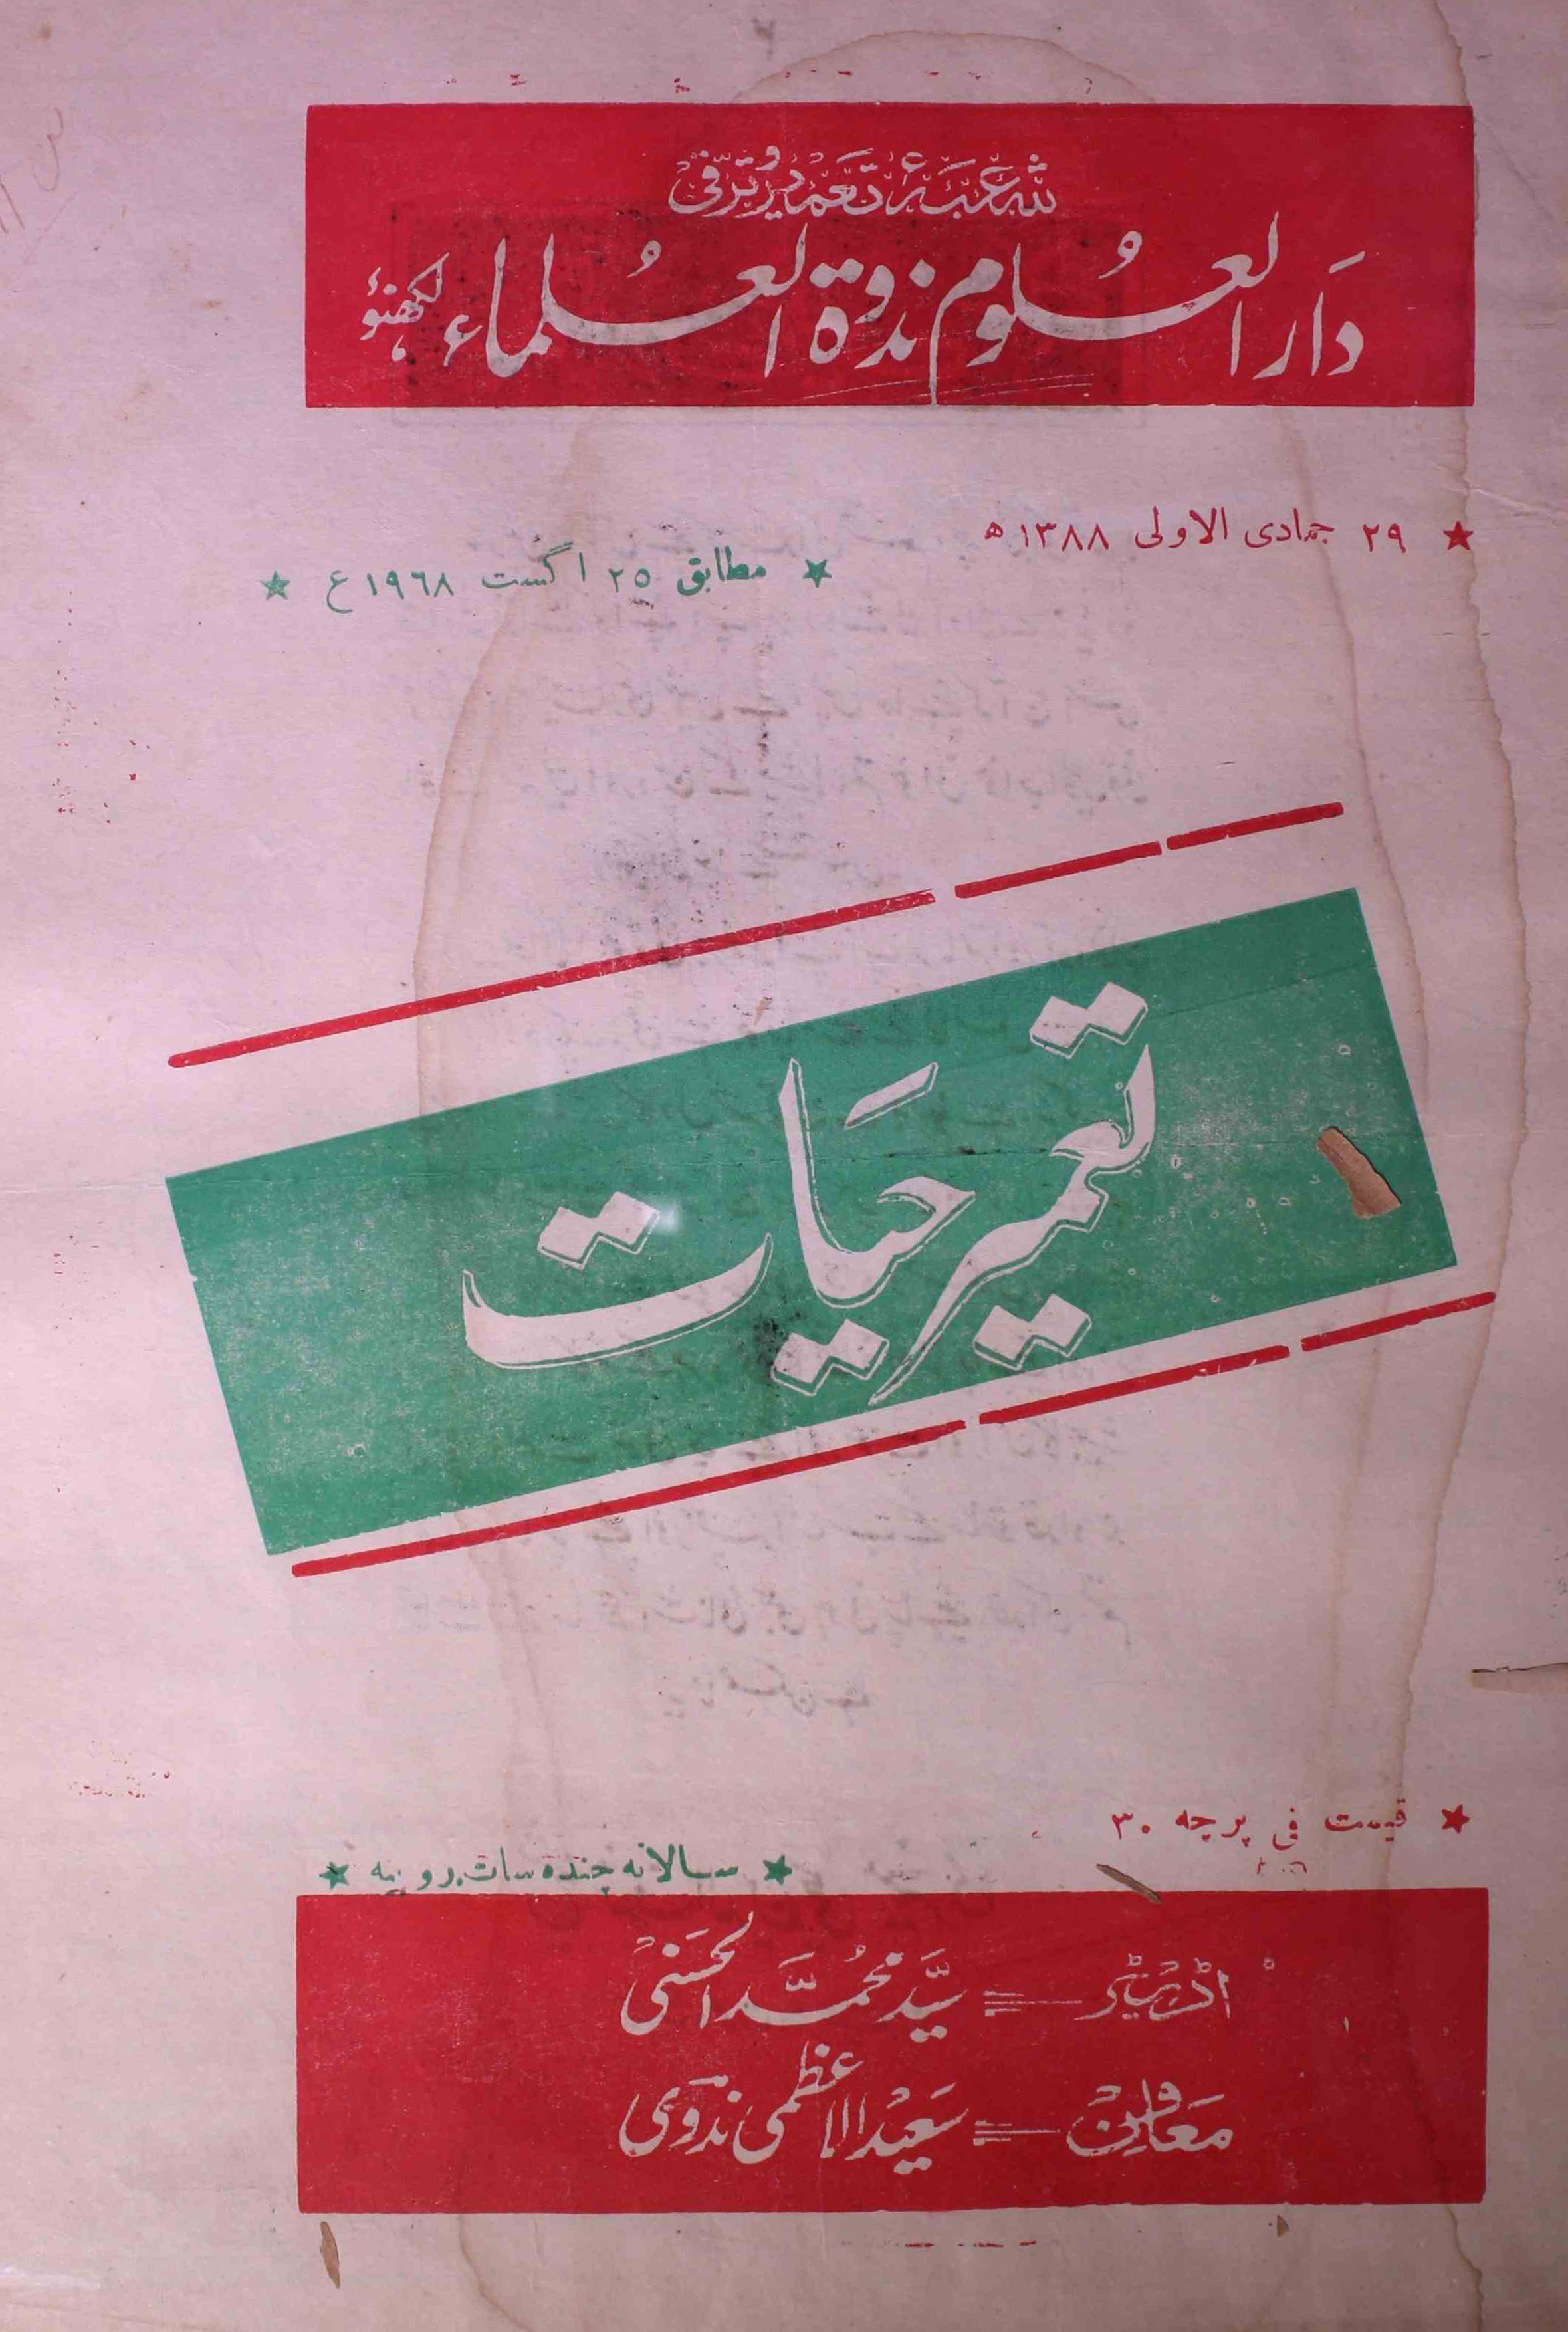 شعبۂ تعمیر و ترقی
دَار العُلوم ندوۃ العُلماء لکھنؤ
★ ٢٩ جمادی الاولی ١٣٨٨ھ
★ مطابق ٢٥ اگست ١٩٦٨ع ★
تعمیر حیَات
★ قیمت فی پرچه ٣٠
★ سالانه چنده سات روپیه ★
اڈیٹر = سیَّد محُمَّد الحسَنی
مَعَاوِنْ = سَعیْد الاعظمی ندَوی